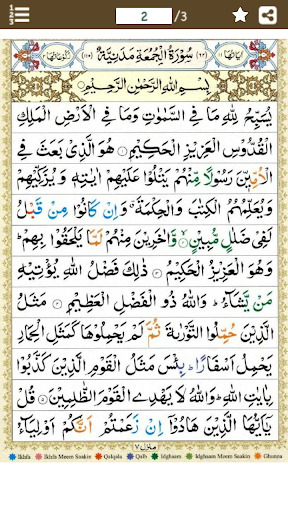 123
2 /3
اٰیَاتُهَا ١١ (٦٢) سُوْرَةُ الْجُمُعَةِ مَدَنِیَّةٌ (١١٠) رُكُوْعَاتُهَا ٢
بِسْمِ اللّٰهِ الرَّحْمٰنِ الرَّحِیْمِ
یُسَبِّحُ لِلّٰهِ مَا فِی السَّمٰوٰتِ وَمَا فِی الْاَرْضِ الْمَلِكِ
الْقُدُّوْسِ الْعَزِیْزِ الْحَكِیْمِ ١ هُوَ الَّذِیْ بَعَثَ فِی
الْاُمِّیّٖنَ رَسُوْلًا مِّنْهُمْ یَتْلُوْا عَلَیْهِمْ اٰیٰتِهٖ وَیُزَكِّیْهِمْ
وَیُعَلِّمُهُمُ الْكِتٰبَ وَالْحِكْمَةَ ۗ وَاِنْ كَانُوْا مِنْ قَبْلُ
لَفِیْ ضَلٰلٍ مُّبِیْنٍ ٢ وَّاٰخَرِیْنَ مِنْهُمْ لَمَّا یَلْحَقُوْا بِهِمْ ؕ
وَهُوَ الْعَزِیْزُ الْحَكِیْمُ ٣ ذٰلِكَ فَضْلُ اللّٰهِ یُؤْتِیْهِ
مَنْ یَّشَآءُ ؕ وَاللّٰهُ ذُو الْفَضْلِ الْعَظِیْمِ ٤ مَثَلُ
الَّذِیْنَ حُمِّلُوا التَّوْرٰىةَ ثُمَّ لَمْ یَحْمِلُوْهَا كَمَثَلِ الْحِمَارِ
یَحْمِلُ اَسْفَارًا ؕ بِئْسَ مَثَلُ الْقَوْمِ الَّذِیْنَ كَذَّبُوْا
بِاٰیٰتِ اللّٰهِ ؕ وَاللّٰهُ لَا یَهْدِی الْقَوْمَ الظّٰلِمِیْنَ ٥ قُلْ
یٰۤاَیُّهَا الَّذِیْنَ هَادُوْۤا اِنْ زَعَمْتُمْ اَنَّكُمْ اَوْلِیَآءُ
منزل ٧
Ikhfa Ikhfa Meem Saakin Qalqala Qalb Idghaam Idghaam Meem Saakin Ghunna